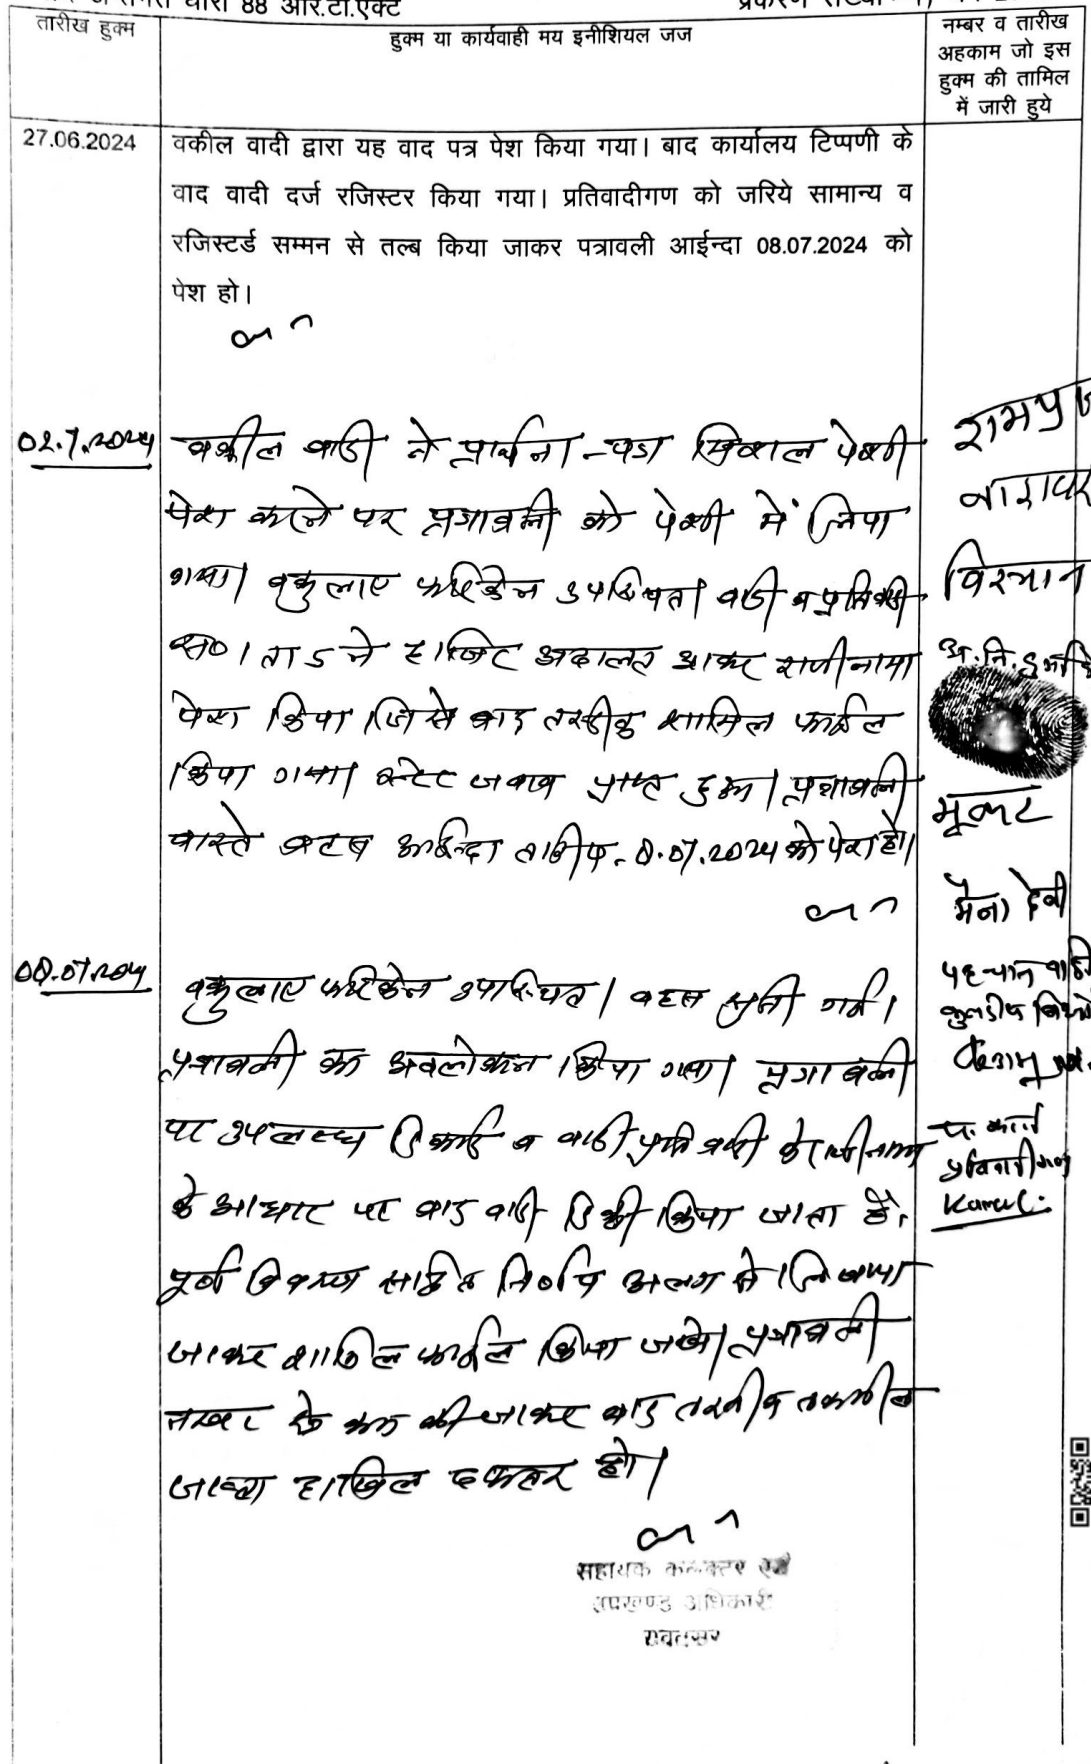 धारा 88 आर.टी.एक्ट
तारीख हुक्म
हुक्म या कार्यवाही मय इनीशियल जज
नम्बर व तारीख
अहकाम जो इस
हुक्म की तामिल
में जारी हुये
27.06.2024
वकील वादी द्वारा यह वाद पत्र पेश किया गया। बाद कार्यालय टिप्पणी के
वाद वादी दर्ज रजिस्टर किया गया। प्रतिवादीगण को जरिये सामान्य व
रजिस्टर्ड सम्मन से तल्ब किया जाकर पत्रावली आईन्दा 08.07.2024 को
पेश हो।
02.7.2024
वकील वादी ने प्रार्थना-पत्र पेशी
पेश करने पर पत्रावली को पेशी में लिया
गया। वकुलाए फरिकेन उपस्थित। वादी व प्रतिवादी
स० 1 ता 5 ने हाजिर अदालत आकर राजीनामा
पेश किया। जिसे बाद तस्दीक शामिल फाईल
किया गया। स्टेट जवाब प्राप्त हुआ। पत्रावली
वास्ते बहस आईन्दा तारीख 8.07.2024 को पेश हो।
08.07.2024
वकुलाए फरिकेन उपस्थित। बहस सुनी गई।
पत्रावली का अवलोकन किया गया। पत्रावली
पर उपलब्ध रिकार्ड व वादी प्रतिवादी के राजीनामा
के आधार पर वाद वादी डिक्री किया जाता है।
पूर्ण विवरण सहित निर्णय अलग से लिखाया
जाकर शामिल फाईल किया जावे। पत्रावली
नम्बर से कम की जाकर बाद तरतीब तकमील
जाब्ता दाखिल दफ्तर हो।
सहायक कलक्टर एवं
उपखण्ड अधिकारी
रावतसर
मैना देवी
पहचान
Kamal